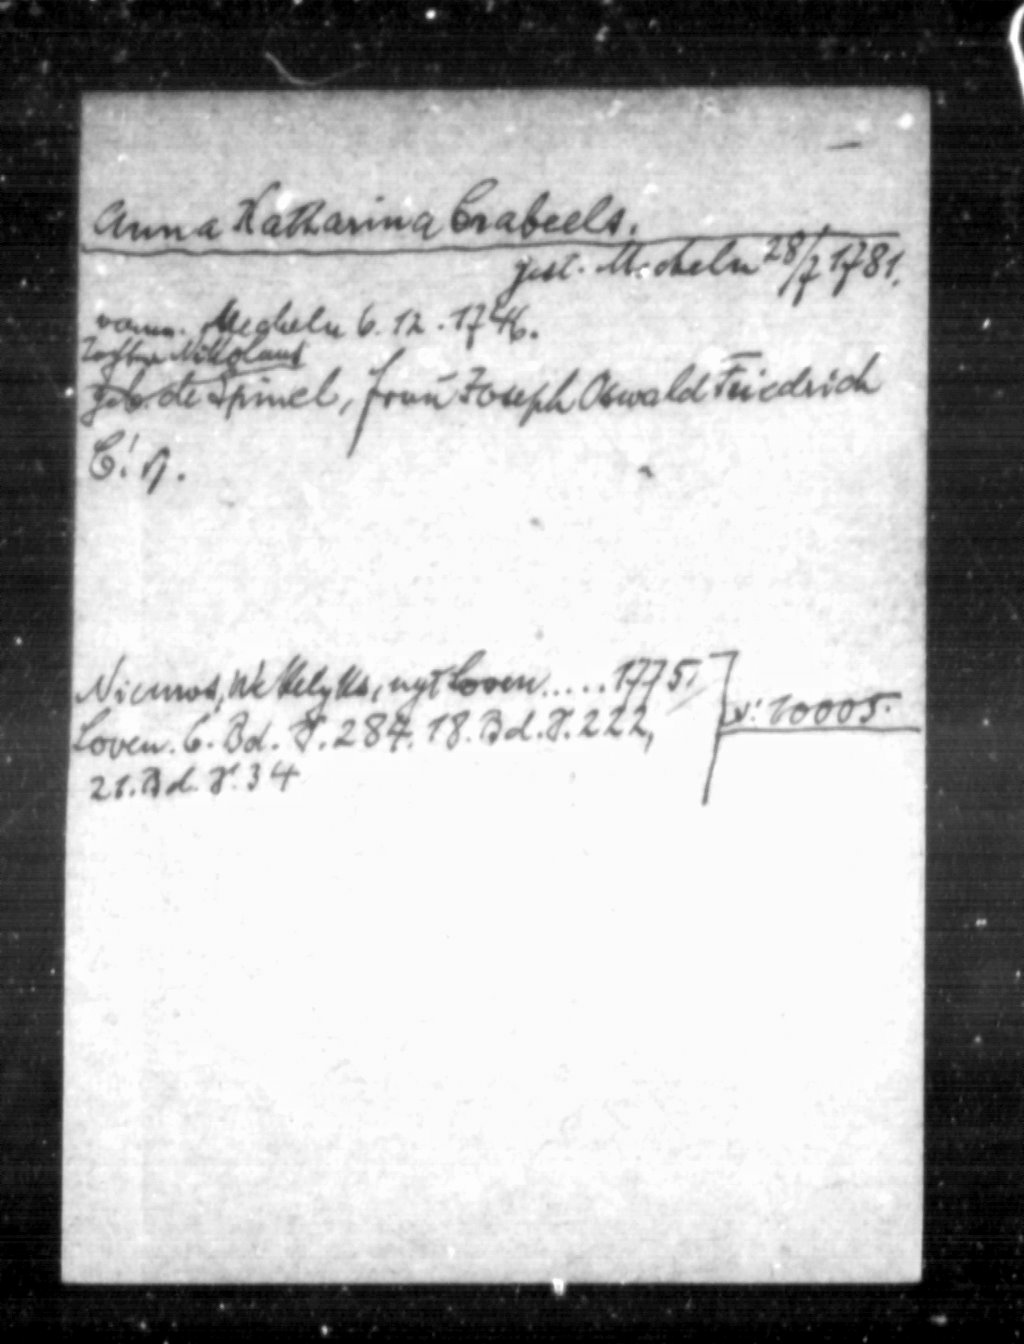 Anna Katharina Crabeels.
gest. Mecheln 28/7 1781.
verm. Mecheln 6.12.1746.
Tochter Nikolaus
geb. de Spinel, frau Joseph Oswald Friedrich
C!
Nieuws, Wekelyks, uyt Loven ..... 1775,
Loven. 6. Bd. S. 284. 18. Bd. S. 222,
21. Bd. S. 34
v: 10005.